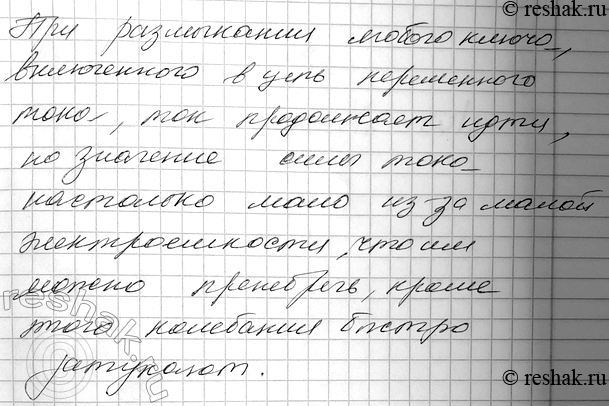 reshak.ru
При размыкании любого ключа,
включенного в цепь переменного
тока, ток продолжает идти,
но значение силы тока
настолько мало из-за малой
электроемкости, что им
можно пренебречь, кроме
этого колебания быстро
затухают.
reshak.ru